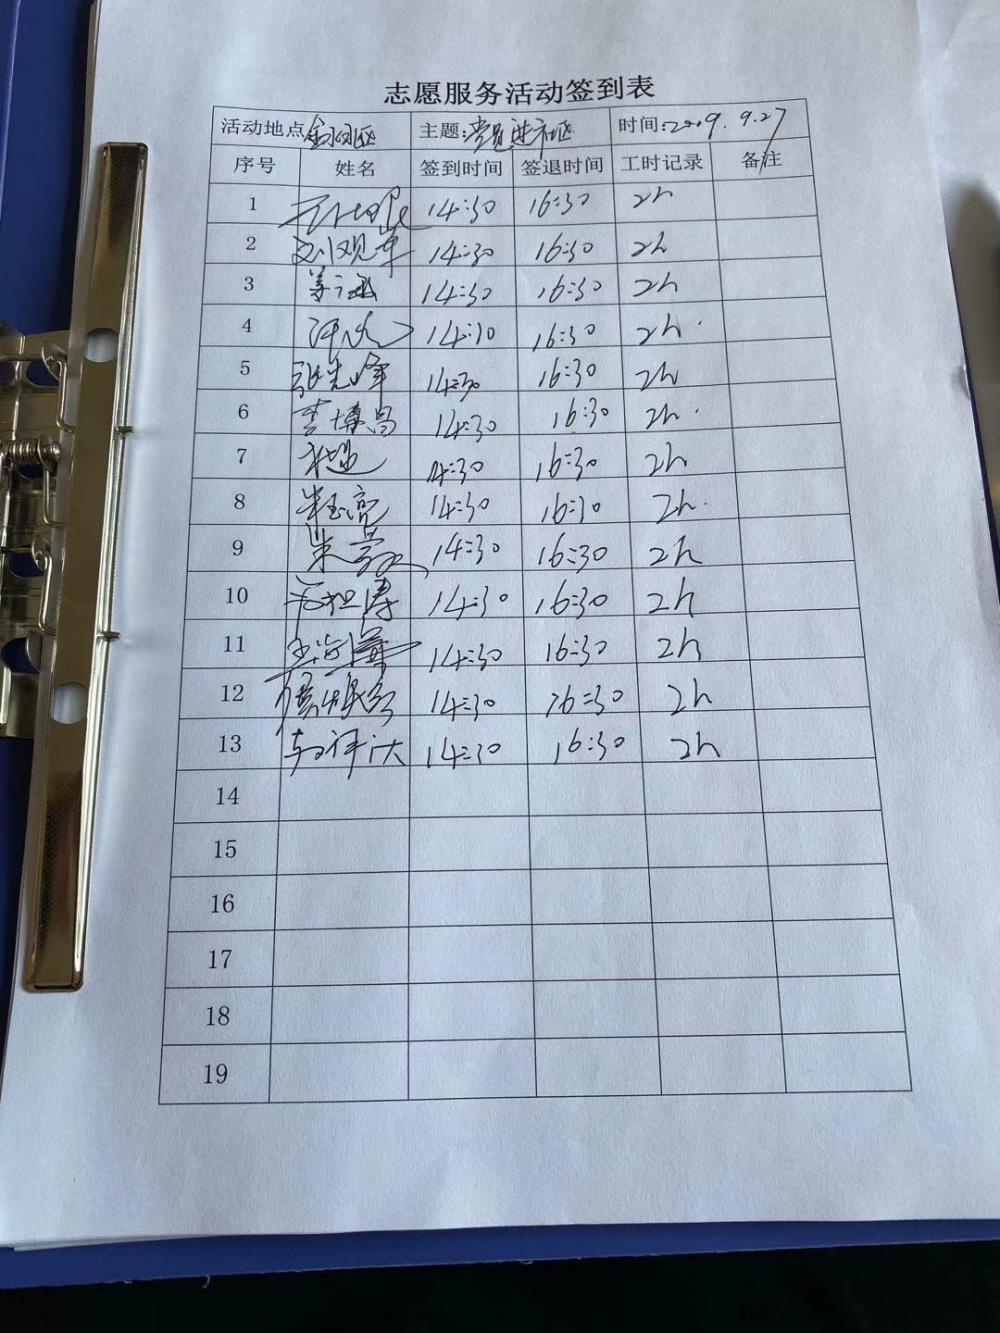 志愿服务活动签到表
活动地点 主题:党员进社区 时间:2009.9.27
序号 姓名 签到时间 签退时间 工时记录 备注
1 14:30 16:30 2h
2 刘观军 14:30 16:30 2h
3 14:30 16:30 2h
4 14:30 16:30 2h
5 张先峰 14:30 16:30 2h
6 李博昌 14:30 16:30 2h
7 14:30 16:30 2h
8 朱玉亮 14:30 16:30 2h
9 14:30 16:30 2h
10 14:30 16:30 2h
11 14:30 16:30 2h
12 14:30 16:30 2h
13 14:30 16:30 2h
14
15
16
17
18
19